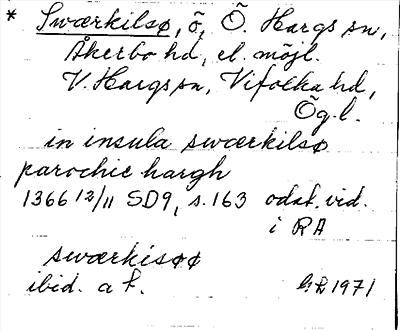 * Swærkilsø, ö, Ö. Hargs sn,
Åkerbo hd, el. möjl.
V. Hargs sn, Vifolka hd,
Ög.l.
in insula swærkilsø
parochie hargh
1366 12/11 SD9, s.163 odat. vid.
i RA
swærkisøø
ibid. a f.
1971